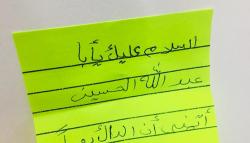 السلام عليك يأبا
عبد الله الحسين
أتمنى أن